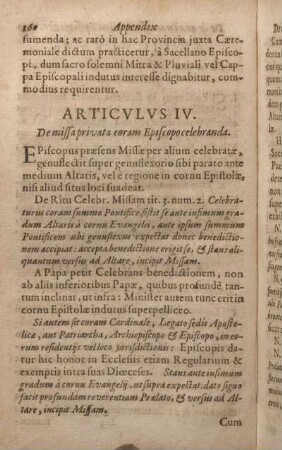 160 Appendix
sumenda; ac rarò in hac Provincia juxta Cære-
moniale dictum practicetur, à Sacellano Episco-
pi, dum sacro solemni Mitra & Pluviali vel Cap-
pa Episcopali indutus interesse dignabitur, com-
modius requirentur.
ARTICVLVS IV.
De missa privata coram Episcopo celebranda.
EPiscopus præsens Missæ per alium celebratæ,
genuflectit super genuflexorio sibi parato ante
medium Altaris, vel è regione in cornu Epistolæ,
nisi aliud situs loci suadeat.
De Ritu Celebr. Missam tit. 3. num. 2. Celebra-
turus coram summo Pontifice, sistit se ante infimum gra-
dum Altaris à cornu Evangelii, ante ipsum summum
Pontificem ubi genuflexus expectat donec benediction-
nem accipiat: accepta benedictione erigit se, & stans ali-
quantum versus ad Altare, incipit Missam.
A Papa petit Celebrans benedictionem, non
ab aliis inferioribus Papæ, quibus profundè tan-
tum inclinat, ut infra: Minister autem tunc erit in
cornu Epistolæ indutus superpelliceo.
Si autem sit coram Cardinale, Legato sedis Aposto-
licæ, aut Patriarcha, Archiepiscopo & Episcopo, in eo-
rum residentiis vel loco jurisdictionis: Episcopis da-
tur hic honor in Ecclesiis etiam Regularium &
exemptis intra suas Diœceses. Stans ante infimum
gradum à cornu Evangelij, ut supra expectat: dato signo
facit profundam reverentiam Prælato, & versus ad Al-
tare, incipit Missam.
Cum